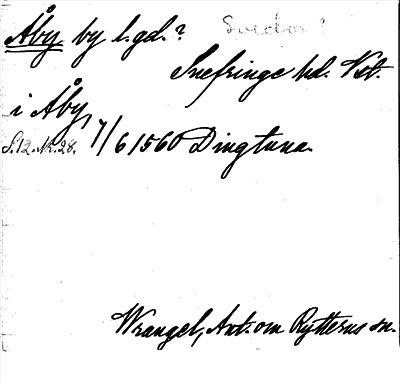 Åby by l. gd.?
Snefringe hd. Vstl.
i Åby,
S.12.Nr.28. 7/6 1560 Dingtuna.
Wrangel, Ant. om Rytterns sn.